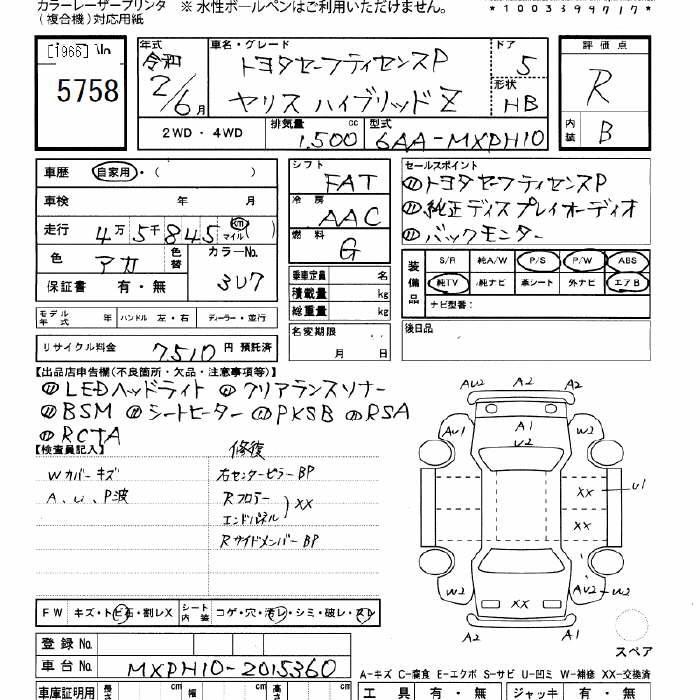 カラーレーザープリンタ ※ 水性ボールペンはご利用いただけません。
(複合機)対応用紙
*1003399717*
[1966] No
5758
年式 車名・グレード ドア 評価点
令和 トヨタセーフティセンスP 5 R
2/6月 ヤリス ハイブリッドZ 形状 HB 内装 B
2WD・4WD 排気量 1,500 cc 型式 6AA-MXPH10
車歴 自家用・( )
車検 年 月
走行 4万5千845 km マイル( )
色 アカ 色替 カラーNo. 3U7
保証書 有・無
シフト FAT
冷房 AAC
燃料 G
乗車定員 名
積載量 kg
総重量 kg
名変期限 月 日
セールスポイント
トヨタセーフティセンスP
純正ディスプレイオーディオ
バックモニター
装備品 S/R 純A/W P/S P/W ABS
純TV 純ナビ 革シート 外ナビ エアB
ナビ型番:
後日品
モデル年式 年 ハンドル 左・右 ディーラー・並行
リサイクル料金 7510 円 預託済
【出品店申告欄(不良箇所・欠品・注意事項等)】
LEDヘッドライト クリアランスソナー
BSM シートヒーター PKSB RSA
RCTA
【検査員記入】 修復
Wカバーキズ 右センターピラーBP
A、U、P波 Rフロアー
エンドパネル XX
RサイドメンバーBP
AU2 A2 A2
AU1 A1 U2 W2
XX U1
XX
W2 XX AU2 W2
A2 A1
スペア
FW キズ・トビ石・割レX シート内装 コゲ・穴・汚レ・シミ・破レ・スレ
登録No.
車台No. MXPH10-2015360
A-キズ C-腐食 E-エクボ S-サビ U-凹ミ W-補修 XX-交換済
車庫証明用 長さ cm 幅 cm 高さ cm 工具 有・無 ジャッキ 有・無